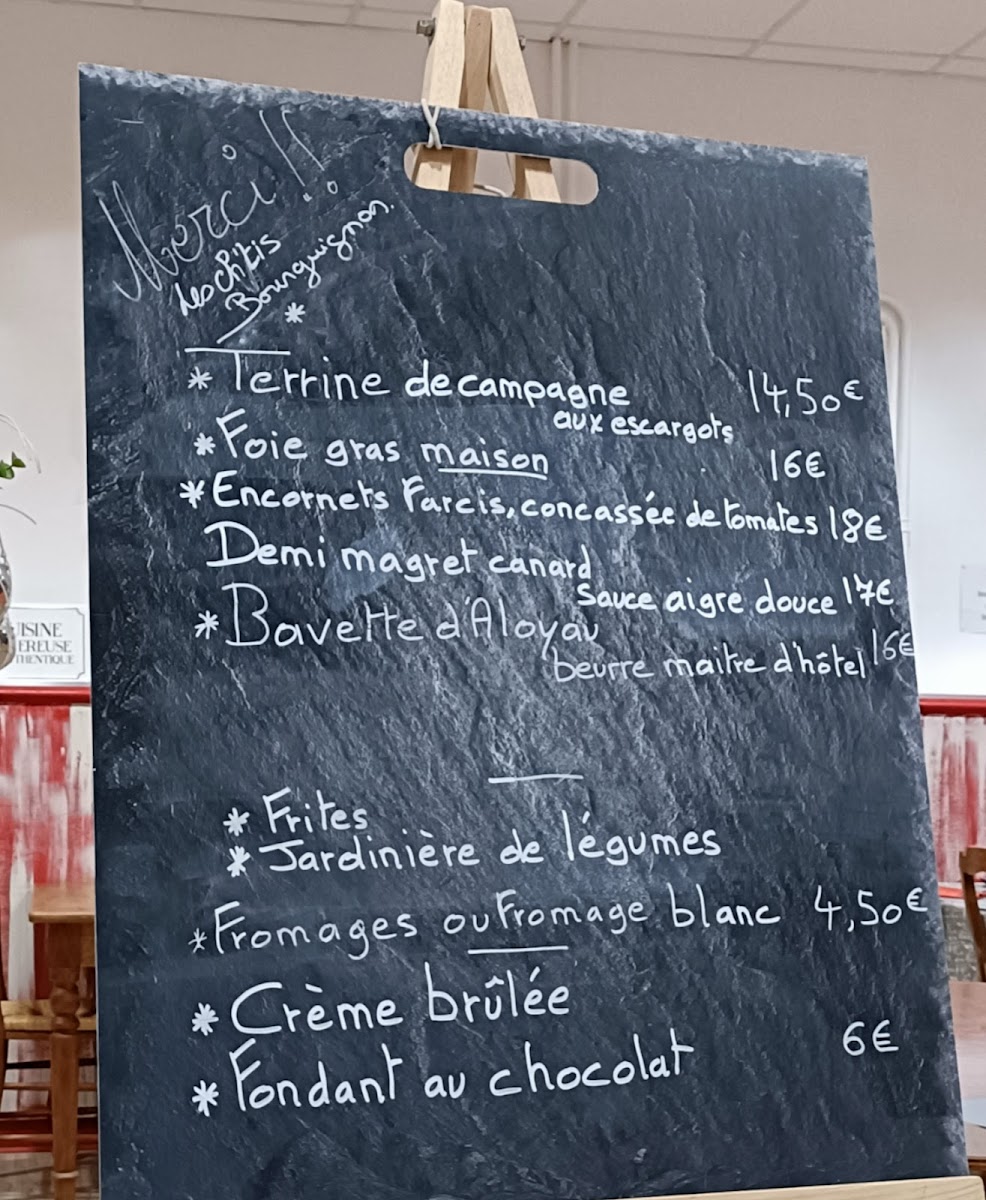 Merci !!
Les Ch'tis
Bourguignon.
*
* Terrine de campagne 14,50€
aux escargots
* Foie gras maison 16€
* Encornets Farcis, concassée de tomates 18€
Demi magret canard
Sauce aigre douce 17€
* Bavette d'Aloyau
beurre maitre d'hôtel 16€
* Frites
* Jardinière de légumes
* Fromages ou Fromage blanc 4,50€
* Crème brûlée
6€
* Fondant au chocolat